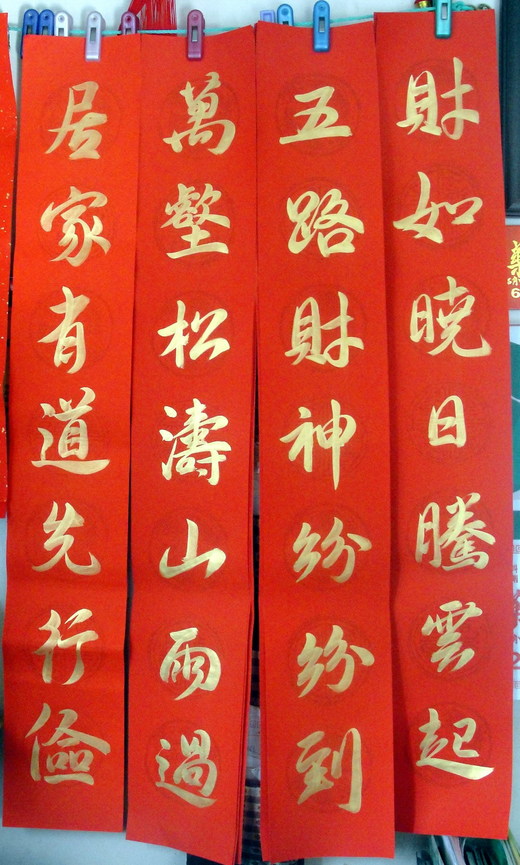 財如曉日騰雲起
五路財神紛紛到
萬壑松濤山雨過
居家有道先行儉